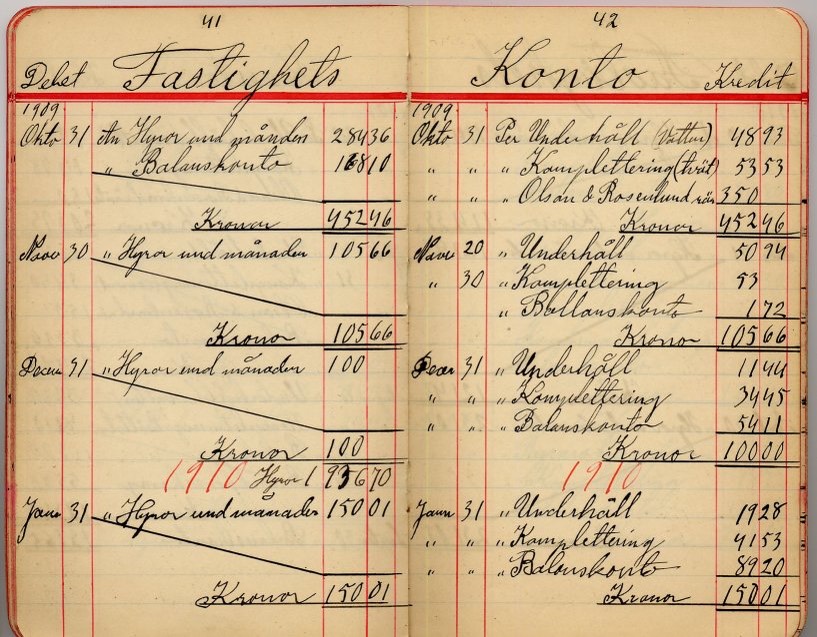 41
Debet Fastighets
1909
Okto 31 An Hyror und månaden 284 36
" Balanskonto 168 10
Kronor 452 46
Nove 30 " Hyror und månaden 105 66
Kronor 105 66
Decem 31 " Hyror und månaden 100
Kronor 100
1910 Hyror 1 956 70
Janu 31 " Hyror und månaden 150 01
Kronor 150 01
42
Konto Kredit
1909
Okto 31 Per Underhåll (Vatten) 48 93
" " " Komplettering (tvät) 53 53
" " " Olson & Rosenlund rän 350
Kronor 452 46
Nove 20 " Underhåll 50 94
" 30 " Komplettering 53
" Ballanskonto 1 72
Kronor 105 66
Decem 31 " Underhåll 11 44
" " " Komplettering 34 45
" " " Balanskonto 54 11
Kronor 100 00
1910
Janu 31 " Underhåll 19 28
" " " Komplettering 41 53
" " " Balanskonto 89 20
Kronor 150 01